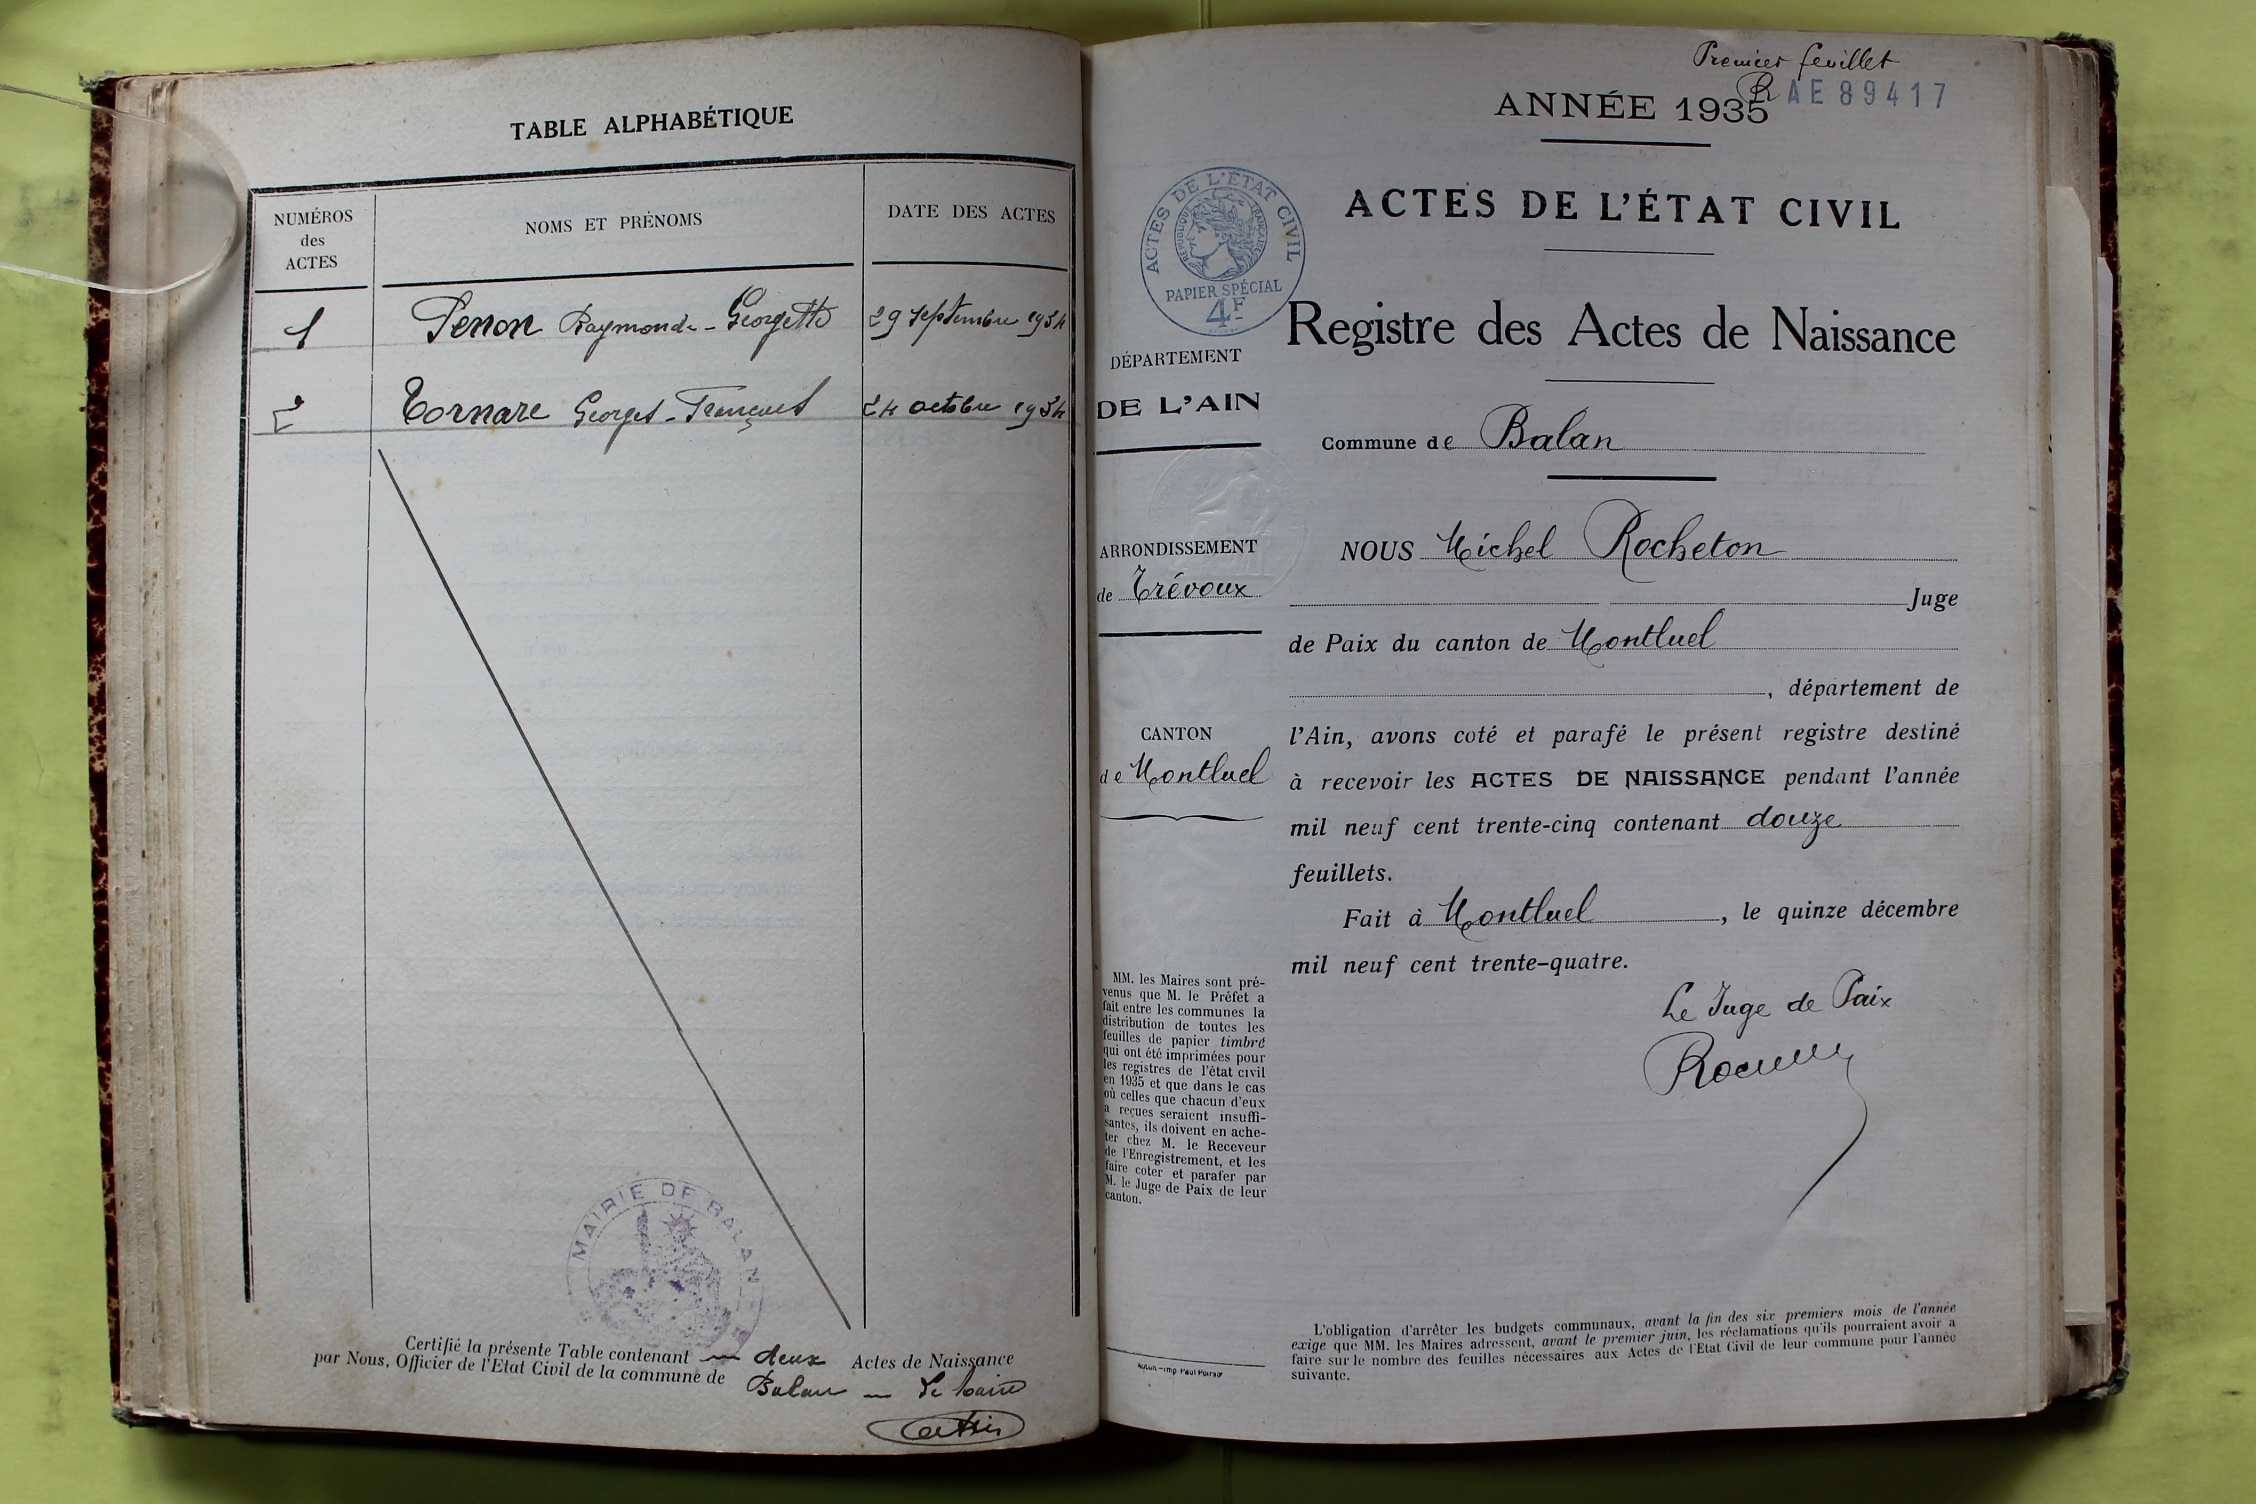 TABLE ALPHABÉTIQUE
NUMÉROS
des
ACTES
NOMS ET PRÉNOMS
DATE DES ACTES
1 Penon Raymonde-Georgette 29 septembre 1934
2 Tornare Georges-François 24 octobre 1934
MAIRIE DE BALAN
Certifié la présente Table contenant deux Actes de Naissance
par Nous, Officier de l'Etat Civil de la commune de Balan Le Maire
Premier feuillet
AE 89417
ANNÉE 1935
ACTES DE L'ÉTAT CIVIL
RÉPUBLIQUE FRANÇAISE
PAPIER SPÉCIAL
4F
ACTES DE L'ÉTAT CIVIL
Registre des Actes de Naissance
DÉPARTEMENT
DE L'AIN
Commune de Balan
ARRONDISSEMENT
de Trévoux
CANTON
de Montluel
NOUS Michel Rocheton
Juge
de Paix du canton de Montluel
, département de
l'Ain, avons coté et parafé le présent registre destiné
à recevoir les ACTES DE NAISSANCE pendant l'année
mil neuf cent trente-cinq contenant douze
feuillets.
Fait à Montluel, le quinze décembre
mil neuf cent trente-quatre.
Le Juge de Paix
MM. les Maires sont pré-
venus que M. le Préfet a
fait entre les communes la
distribution de toutes les
feuilles de papier timbré
qui ont été imprimées pour
les registres de l'état civil
en 1935 et que dans le cas
où celles que chacun d'eux
a reçues seraient insuffi-
santes, ils doivent en ache-
ter chez M. le Receveur
de l'Enregistrement, et les
faire coter et parafer par
M. le Juge de Paix de leur
canton.
L'obligation d'arrêter les budgets communaux, avant la fin des six premiers mois de l'année
exige que MM. les Maires adressent, avant le premier juin, les réclamations qu'ils pourraient avoir a
faire sur le nombre des feuilles nécessaires aux Actes de l'Etat Civil de leur commune pour l'année
suivante.